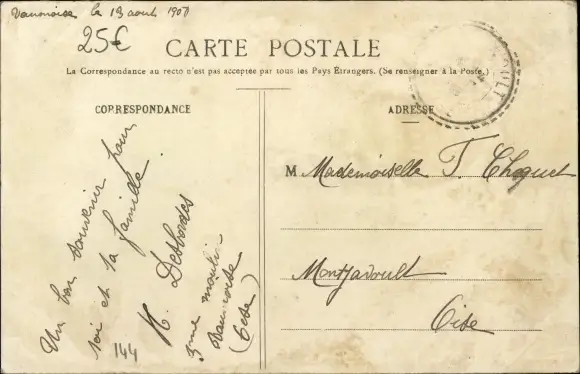 Vaumoise le 13 août 1907
25€
CARTE POSTALE
La Correspondance au recto n'est pas acceptée par tous les Pays Étrangers. (Se renseigner à la Poste.)
CORRESPONDANCE
Un bon souvenir pour
toi et ta famille.
K. Desbordes
3me moulin
Vaumoise
(Oise)
144
ADRESSE
M Mademoiselle T. Choquet
Montjavoult
Oise